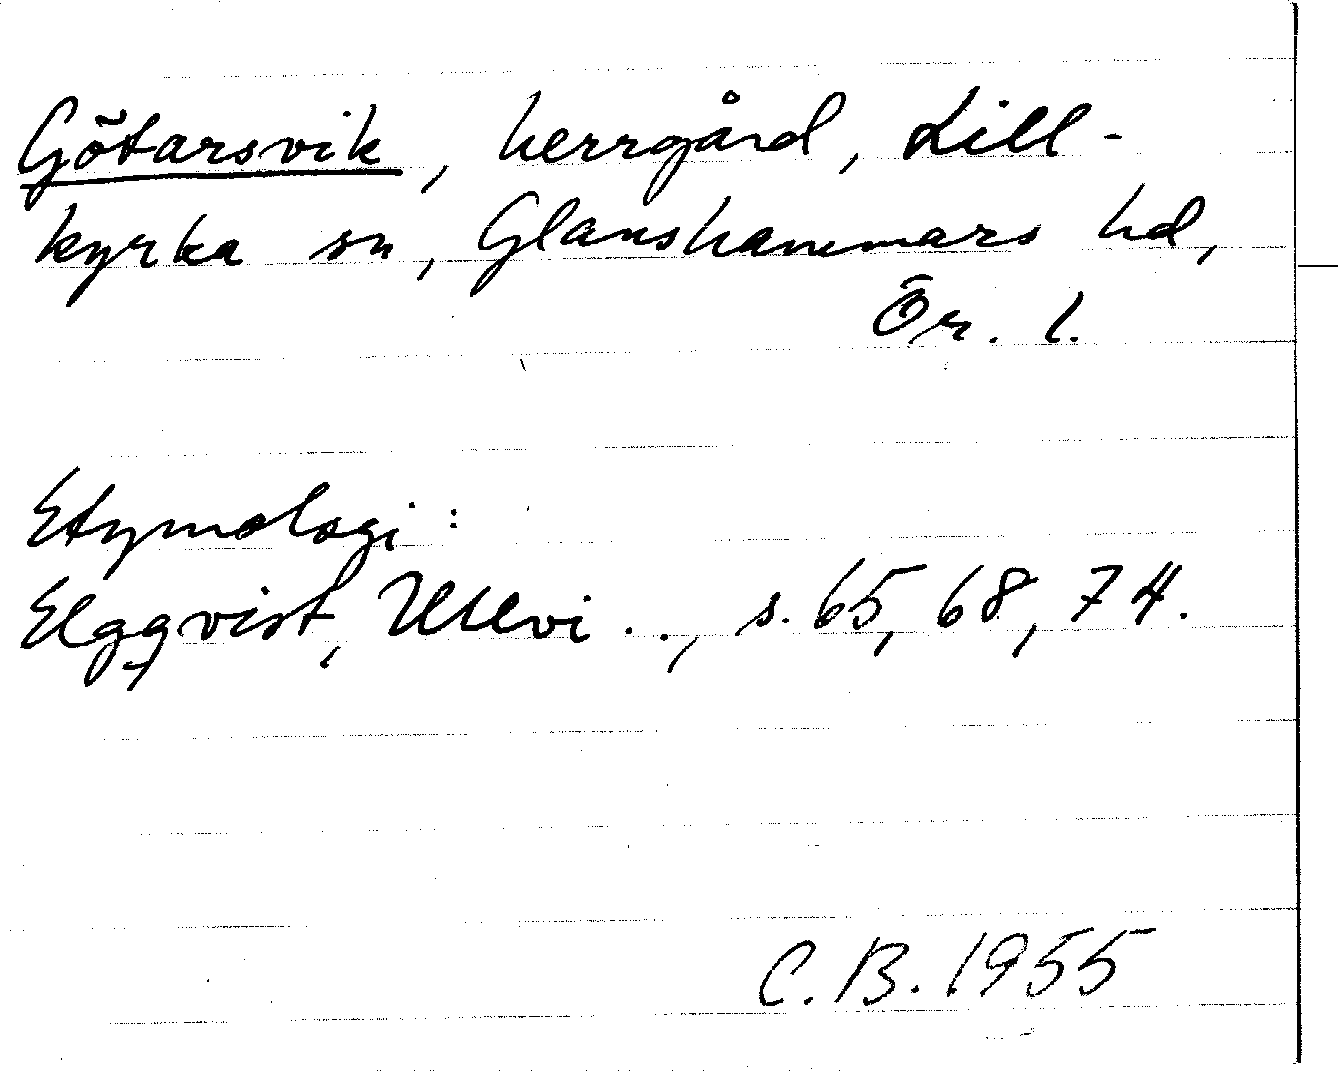 Götarsvik, herrgård, Lill-
kyrka sn, Glanshammars hd,
Ör. l.
Etymologi:
Elgqvist, Ullevi . ., s. 65, 68, 74.
C. B. 1955